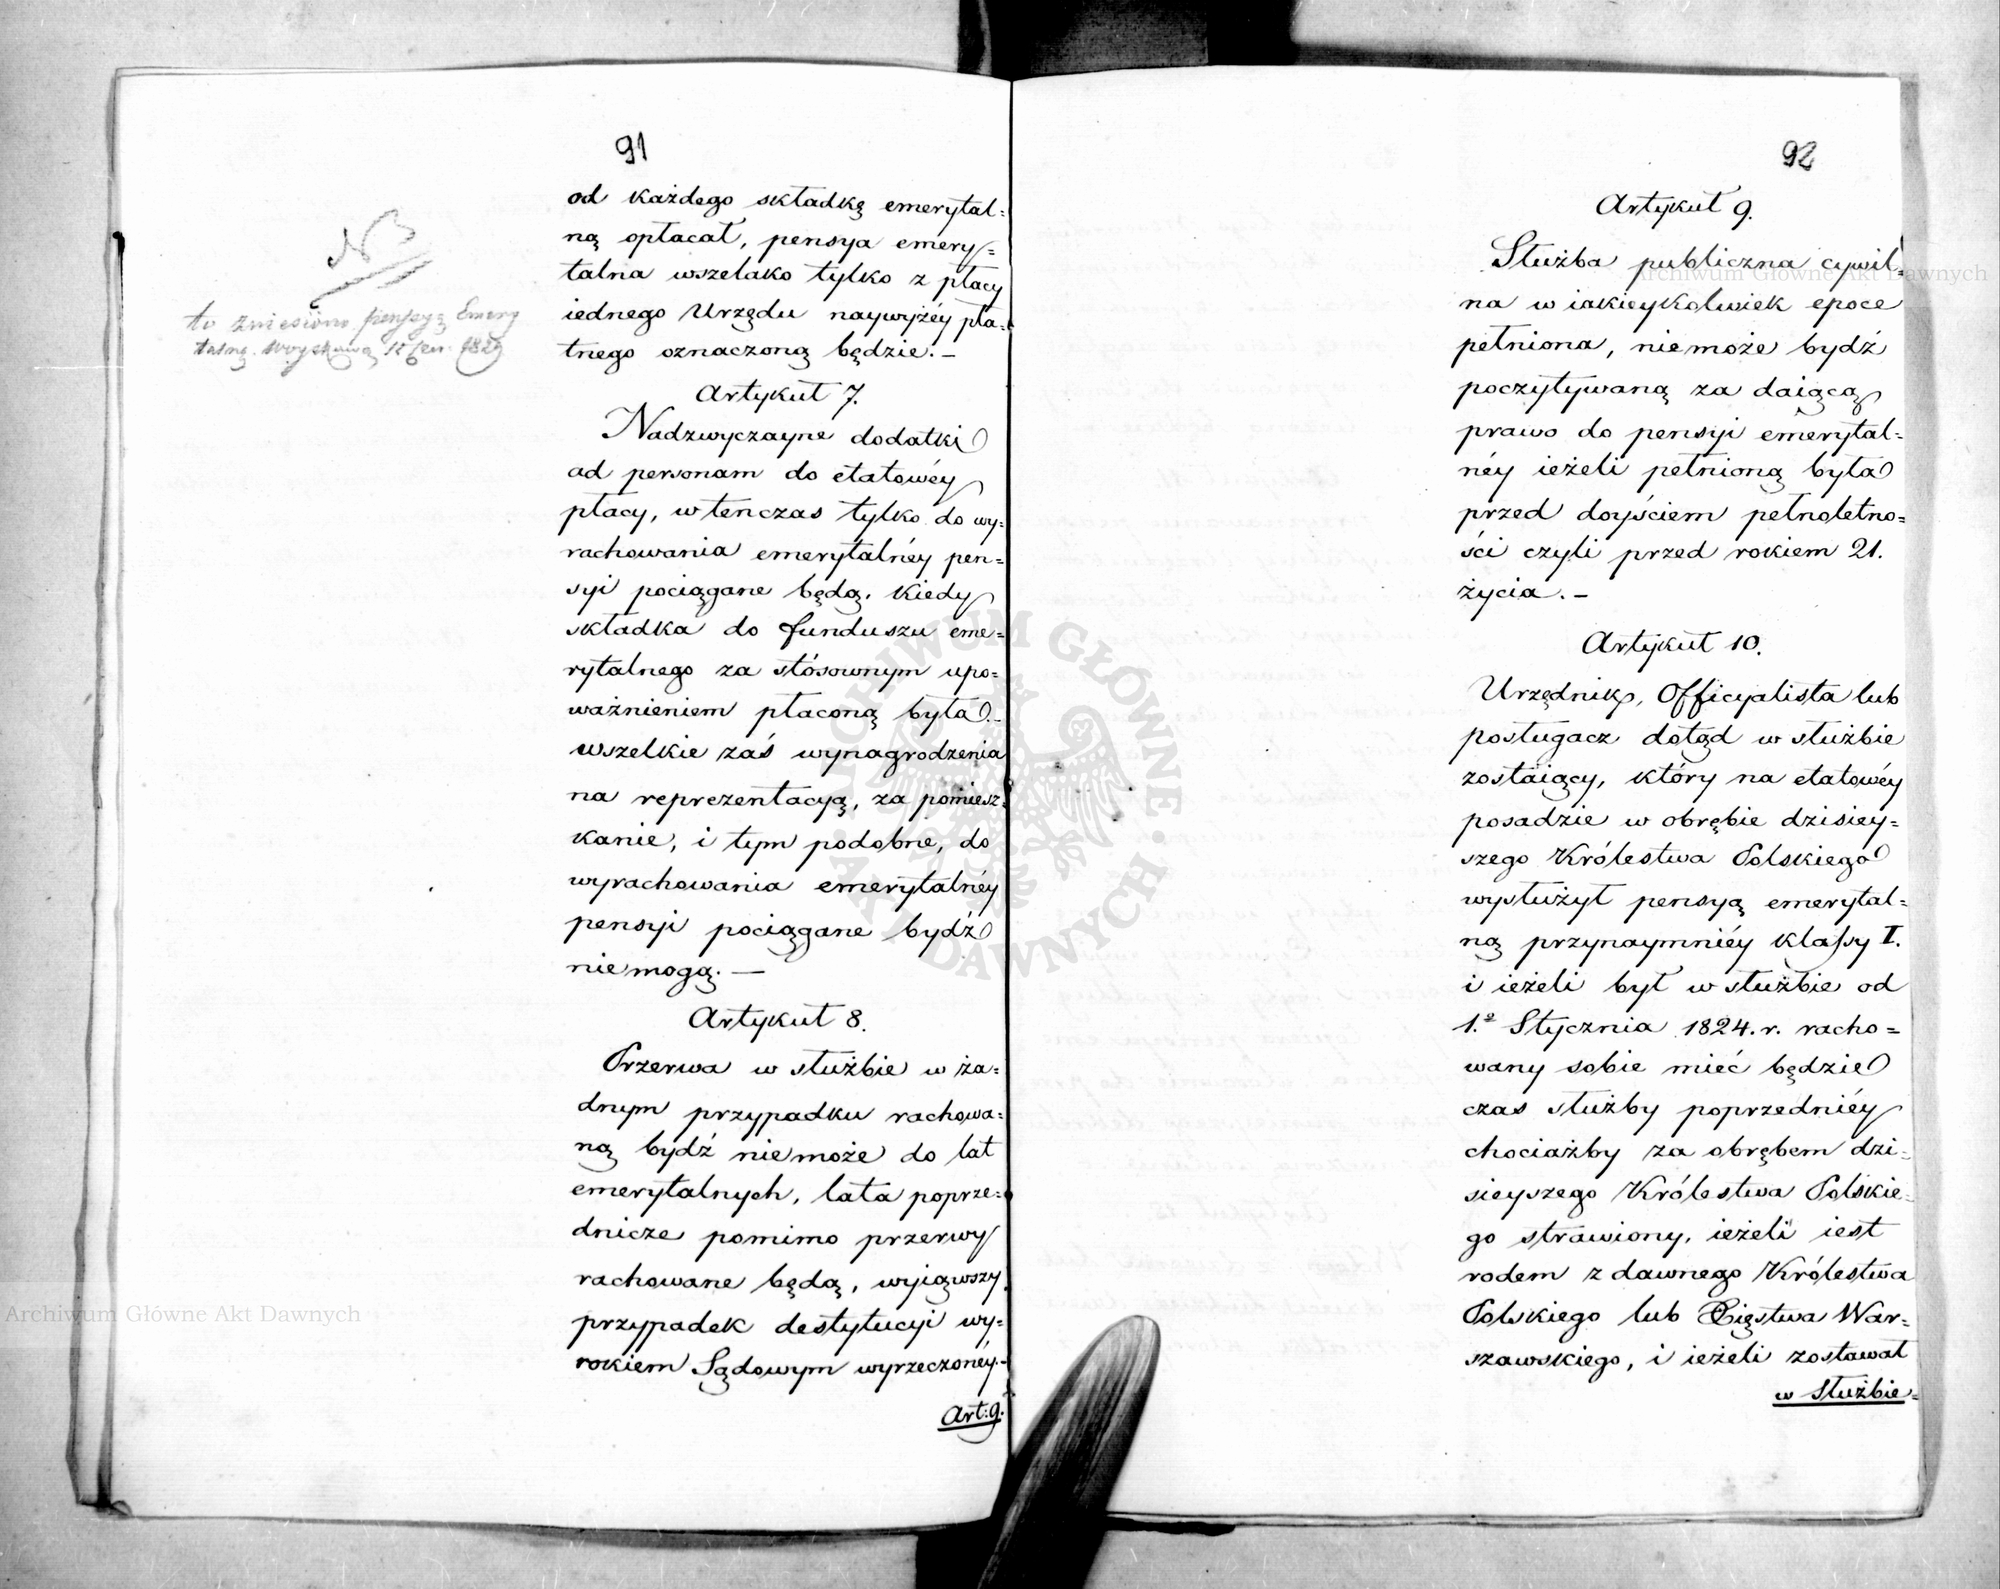 91
od każdego składkę emerytal=
ną opłacał, pensya emery=
talna wszelako tylko z płacy
iednego Urzędu naywyżéy pła=
tnego oznaczoną będzie. –
Artykuł 7.
Nadzwyczayne dodatki
ad personam do etatowéy
płacy, wtenczas tylko do wy=
rachowania emerytalnéy pen=
syi pociągane będą, kiedy
składka do funduszu eme=
rytalnego za stósownym upo=
ważnieniem płaconą była. –
wszelkie zaś wynagrodzenia
na reprezentacyą, za pomiesz=
kanie, i tym podobne, do
wyrachowania emerytalnéy
pensyi pociągane bydź
niemogą. —
Artykuł 8.
Przerwa w służbie w ża=
dnym przypadku rachowa=
ną bydź niemoże do lat
emerytalnych, lata poprze=
dnicze pomimo przerwy
rachowane będą, wyiąwszy
przypadek destytucyi wy=
rokiem Sądowym wyrzeczonéy. –
Art: 9.
N3
to zniesiono pensyą Emery
talną wyższą
92
Artykuł 9.
Służba publiczna cywil=
na w iakieykolwiek epoce
pełniona, niemoże bydź
poczytywaną za daiącą
prawo do pensyi emerytal=
néy ieżeli pełnioną była
przed doyściem pełnoletno=
ści czyli przed rokiem 21.
życia. –
Artykuł 10.
Urzędnik, Officyalista lub
posługacz dotąd w służbie
zostaiący, który na etatowéy
posadzie w obrębie dzisiey=
szego Królestwa Polskiego
wysłużył pensyą emerytal=
ną przynaymniéy klassy I.
i ieżeli był w służbie od
1.º Stycznia 1824. r. racho=
wany sobie mieć będzie
czas służby poprzedniéy
chociażby za obrębem dzi=
sieyszego Królestwa Polskie=
go strawiony, ieżeli iest
rodem z dawnego Królestwa
Polskiego lub Xięstwa War=
szawskiego, i ieżeli zostawał
w służbie=
Archiwum Główne Akt Dawnych
Archiwum Główne Akt Dawnych
ARCHIWUM GŁÓWNE AKT DAWNYCH